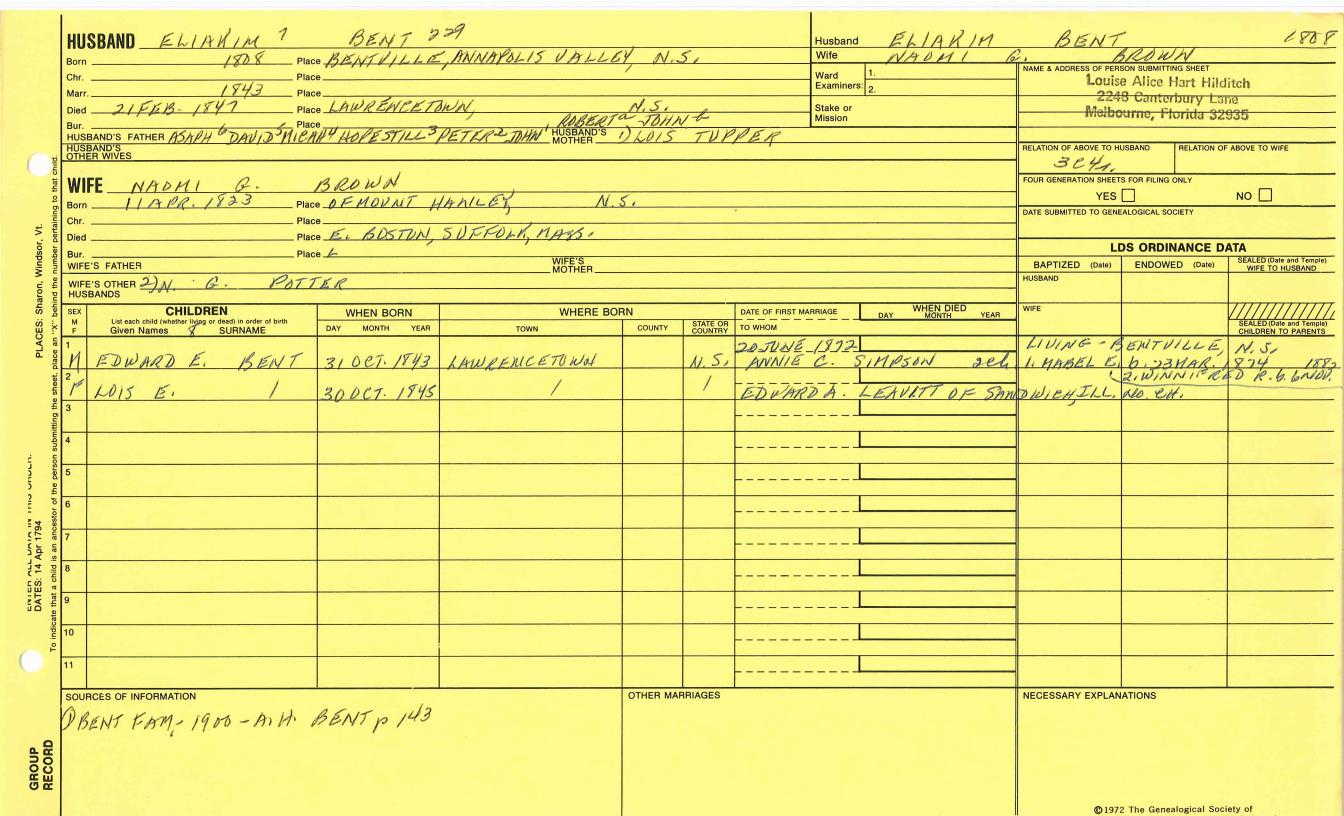 HUSBAND ELIAKIM 7 BENT 229
Born 1808 Place BENTVILLE, ANNAPOLIS VALLEY, N.S.
Chr. Place
Marr. 1843 Place
Died 21 FEB. 1847 Place LAWRENCETOWN, N.S.
Bur. Place ROBERT a JOHN b
HUSBAND'S FATHER ASAPH 6 DAVID 5 MICAH 4 HOPESTILL 3 PETER 2 JOHN 1 HUSBAND'S MOTHER 1) LOIS TUPPER
HUSBAND'S OTHER WIVES
WIFE NAOMI G. BROWN
Born 11 APR. 1823 Place OF MOUNT HANLEY, N.S.
Chr. Place
Died Place E. BOSTON, SUFFOLK, MASS.
Bur. Place
WIFE'S FATHER WIFE'S MOTHER
WIFE'S OTHER HUSBANDS 2) N. G. POTTER
Husband ELIAKIM BENT 1808
Wife NAOMI G. BROWN
Ward Examiners: 1.
2.
Stake or Mission
NAME & ADDRESS OF PERSON SUBMITTING SHEET
Louise Alice Hart Hilditch
2248 Canterbury Lane
Melbourne, Florida 32935
RELATION OF ABOVE TO HUSBAND RELATION OF ABOVE TO WIFE
3C4r.
FOUR GENERATION SHEETS FOR FILING ONLY
YES NO
DATE SUBMITTED TO GENEALOGICAL SOCIETY
LDS ORDINANCE DATA
BAPTIZED (Date) ENDOWED (Date) SEALED (Date and Temple) WIFE TO HUSBAND
HUSBAND
WIFE
SEALED (Date and Temple) CHILDREN TO PARENTS
SEX M F
CHILDREN
List each child (whether living or dead) in order of birth
Given Names 8 SURNAME
WHEN BORN
DAY MONTH YEAR
WHERE BORN
TOWN COUNTY STATE OR COUNTRY
DATE OF FIRST MARRIAGE
TO WHOM
WHEN DIED
DAY MONTH YEAR
1 20 JUNE 1872 LIVING - BENTVILLE, N.S.
M EDWARD E. BENT 31 OCT. 1843 LAWRENCETOWN N.S. ANNIE C. SIMPSON 2ch 1. MABEL E. b. 23 MAR. 1874
2. WINNIFRED R. b. 6 NOV. 1882
2
F LOIS E. 30 OCT. 1845 EDWARD A. LEAVITT OF SANDWICH, ILL. NO. CH.
3
4
5
6
7
8
9
10
11
SOURCES OF INFORMATION
1) BENT FAM, - 1900 - A.H. BENT p 143
OTHER MARRIAGES
NECESSARY EXPLANATIONS
©1972 The Genealogical Society of
PLACES: Sharon, Windsor, Vt.
To indicate that a child is an ancestor of the person submitting the sheet, place an "X" behind the number pertaining to that child.
ENTER ALL DATA IN THIS ORDER:
DATES: 14 Apr 1794
GROUP RECORD